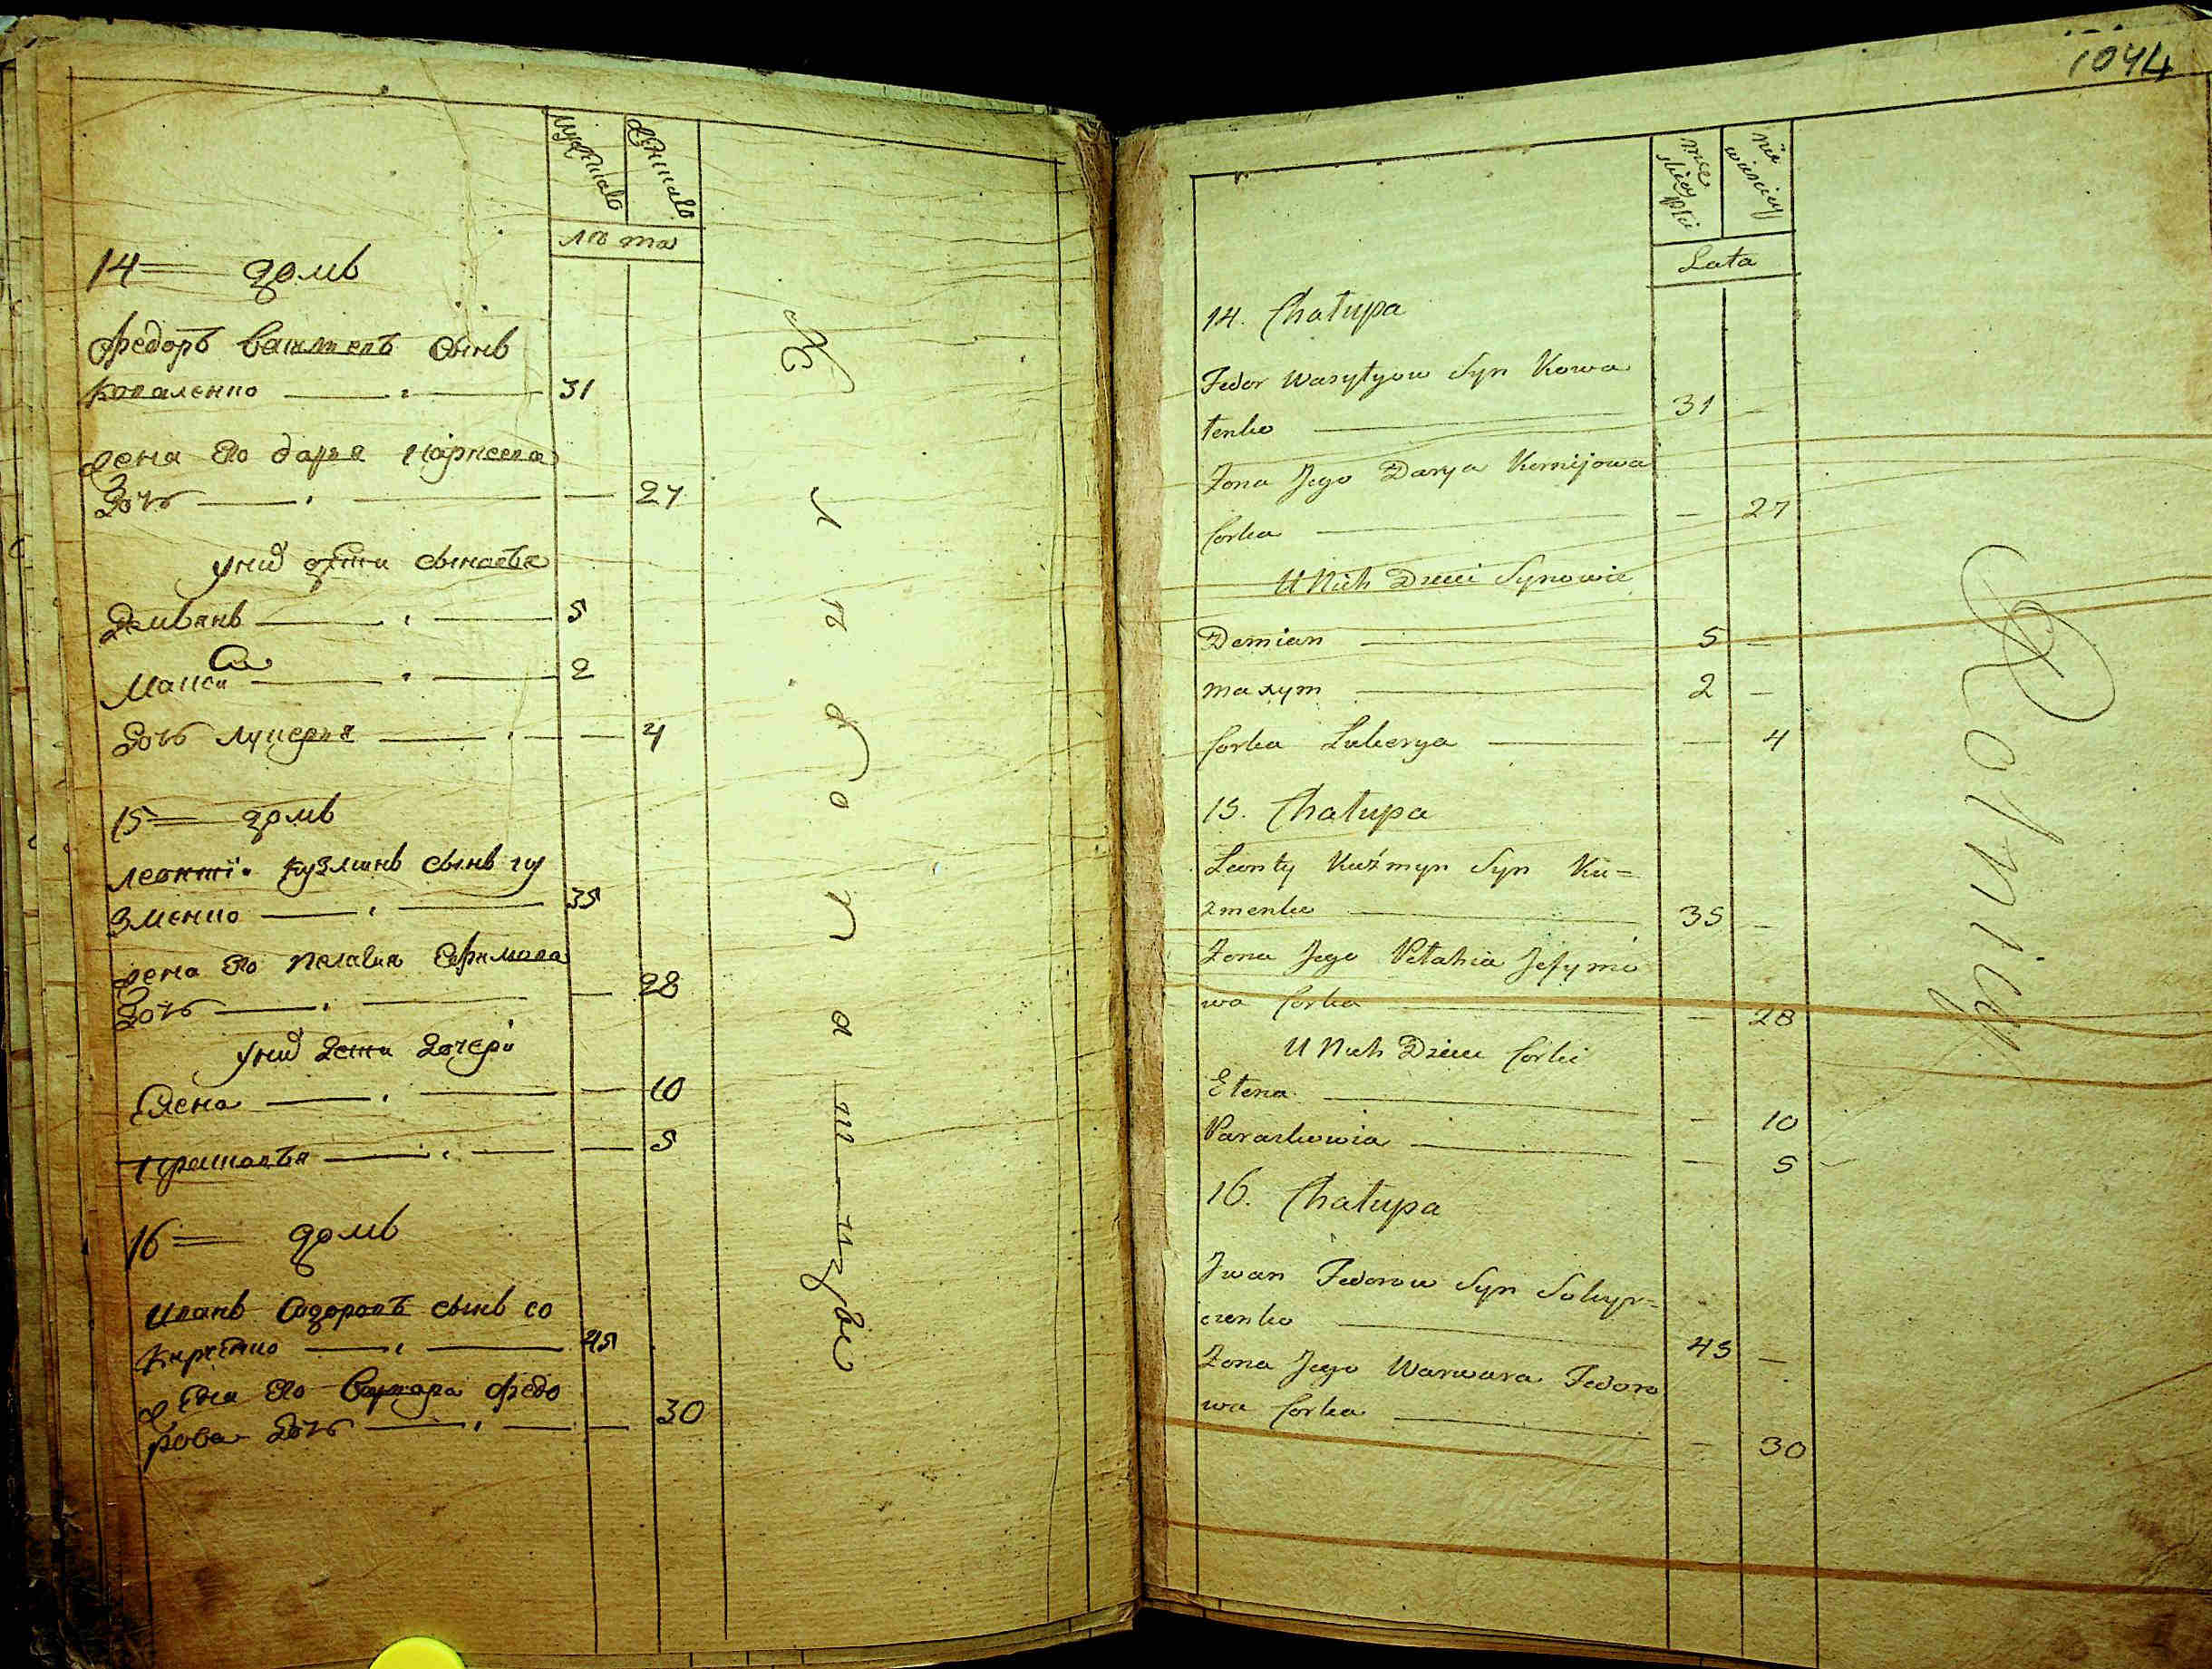 мужиска
женска
лѣта
14 домъ
Федоръ Василиевъ сынъ
Коваленко 31
жена его дарья карнеева
дочь 27
у них дѣти сыновья
Демьянъ 5
Макси 2
дочь лукерья 4
15 домъ
леонтій кузминъ сынъ ку
зменко 35
жена его пелагия Ефимова
дочь 28
у них дети дочери
Елена 10
прасковья 5
16 домъ
иванъ сидоровъ сынъ со
кирченко 45
жена его варвара федо
рова дочь 30
1044
męe
skiey
płci
nie
wieściey
Lata
14. Chałupa
Fedor Wasylyow Syn Kowa
lenko 31 -
Żona Jego Darya Kornijowa
Corka - 27
U Nich Dzieci Synowie
Demian 5 -
Maxym 2 -
Corka Łukerya - 4
15. Chałupa
Leonty Kuźmyn Syn Ku=
zmenko 35 -
Żona Jego Pełahia Jefymo
wa Corka - 28
U Nich Dzieci Corki
Elena - 10
Paraskowia - 5
16. Chałupa
Jwan Fedorow Syn Sokyr=
czenko 45 -
Żona Jego Warwara Fedoro
wa Corka - 30